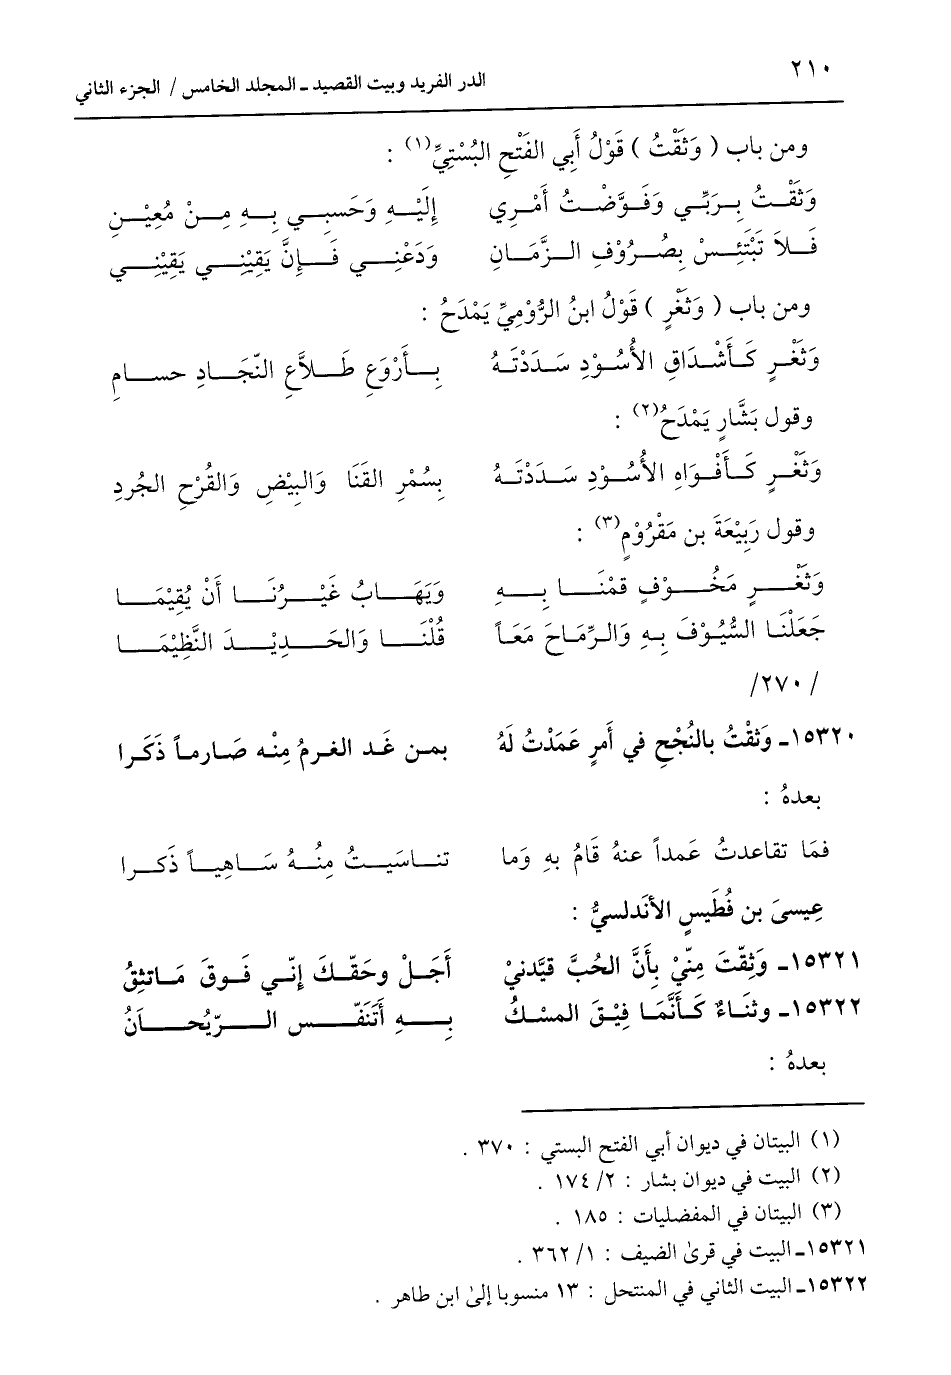 ٢١٠
الدر الفريد وبيت القصيد ـ المجلد الخامس / الجزء الثاني
ومن باب ( وَثَقْتُ ) قَوْلُ أَبِي الفَتْحِ البُسْتِيِّ(١) :
وَثَقْتُ بِرَبِّي وَفَوَّضْتُ أَمْرِي إِلَيْهِ وَحَسبِي بِهِ مِنْ مُعِيْنِ
فَلاَ تَبْتَئِسْ بِصُرُوْفِ الزَّمَانِ وَدَعْنِي فَإِنَّ يَقِيْنِي يَقِيْنِي
ومن باب ( وَثَغْرٍ ) قَوْلُ ابنُ الرُّوْمِيِّ يَمْدَحُ :
وَثَغْرٍ كَأَشْدَاقِ الأُسُوْدِ سَدَدْتَهُ بِأَرْوَعِ طَلاَّعِ النّجَادِ حسامِ
وقول بَشَّارٍ يَمْدَحُ(٢) :
وَثَغْرٍ كَأَفْوَاهِ الأُسُوْدِ سَدَدْتَهُ بِسُمْرِ القَنَا وَالبِيْضِ وَالقُرْحِ الجُردِ
وقول رَبِيْعَةَ بن مَقْرُوْمٍ(٣) :
وَثَغْرٍ مَخُوْفٍ قمْنَا بِهِ وَيَهَابُ غَيْرُنَا أَنْ يُقِيْمَا
جَعَلْنَا السُّيُوْفَ بِهِ وَالرِّمَاحَ مَعَاً قُلْنَا وَالحَدِيْدَ النَّظِيْمَا
/ ٢٧٠/
١٥٣٢٠ـ وَثقْتُ بالنُجْحِ في أَمرٍ عَمَدْتُ لَهُ بمن غَد الغرمُ مِنْه صَارماً ذَكَرا
بعدهُ :
فمَا تقاعدتُ عَمداً عنهُ قَامُ بهِ وَما تناسَيتُ مِنُهُ سَاهِياً ذَكرا
عِيسىَ بن فُطَيسٍ الأنَدلسيُّ :
١٥٣٢١ـ وَثِقّتَ مِنّيْ بِأَنَّ الحُبَّ قيَّدنيْ أَجَلْ وحَقّكَ إنّي فَوقَ مَاتثِقُ
١٥٣٢٢ـ وثنَاءٌ كَأَنَّمَا فِيْقَ المسْكُ بِهِ أَتَنَفّس الرّيُحانُ
بعدهُ :
(١) البيتان في ديوان أبي الفتح البستي : ٣٧٠ .
(٢) البيت في ديوان بشار : ٢/ ١٧٤ .
(٣) البيتان في المفضليات : ١٨٥ .
١٥٣٢١ـ البيت في قرىٰ الضيف : ١/ ٣٦٢ .
١٥٣٢٢ـ البيت الثاني في المنتحل : ١٣ منسوبا إلىٰ ابن طاهر .